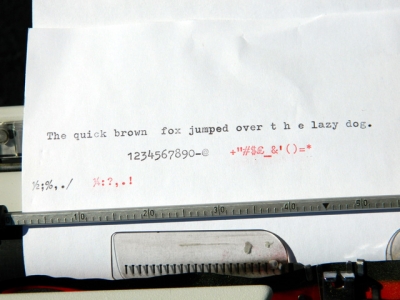 The quick brown  fox jumped over t h e lazy dog.
1234567890-@   +"#$£_&'()=*
½;%,./   ¼:?,.!
10 20 30 40 50